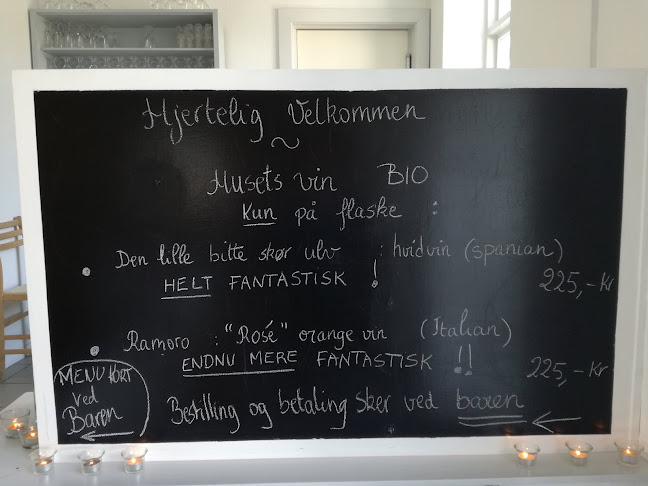 Hjertelig Velkommen
~
Husets vin BIO
Kun på flaske :
• Den lille bitte skør ulv : hvidvin (spanian)
HELT FANTASTISK ! 225,- Kr
• Ramoro : "Rosé" orange vin (Italian)
ENDNU MERE FANTASTISK !! 225,- Kr
MENU KORT
ved
Baren
Bestilling og betaling sker ved baren